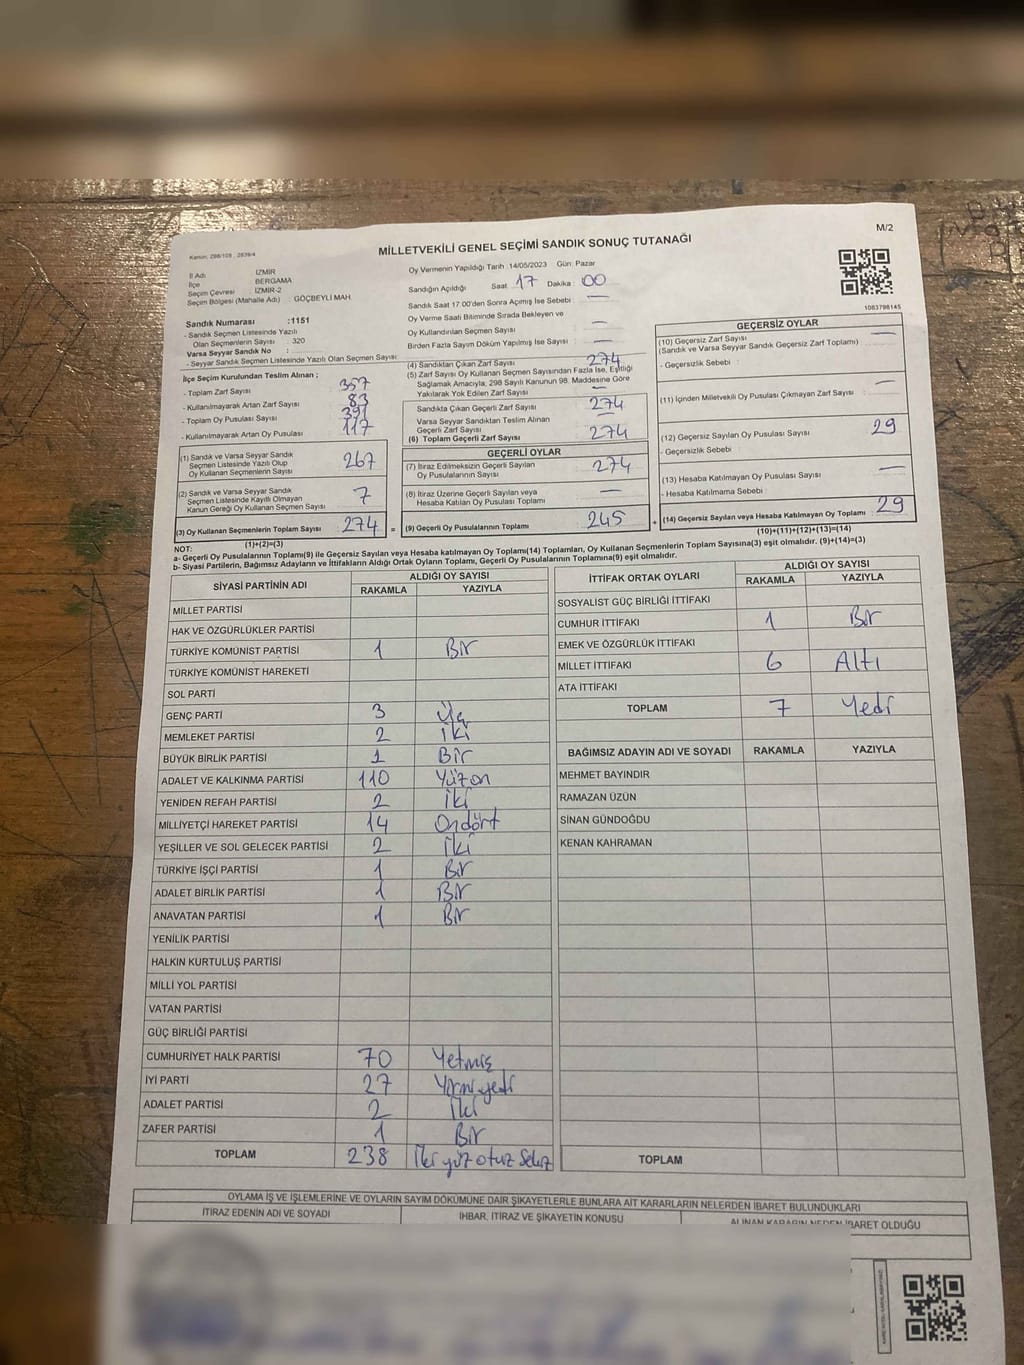 MİLLETVEKİLİ GENEL SEÇİMİ SANDIK SONUÇ TUTANAĞI
M/2
İl Adı İZMİR
İlçe BERGAMA
Seçim Çevresi İZMİR-2
Seçim Bölgesi (Mahalle Adı) : GÖÇBEYLİ MAH.
Sandık Numarası :1151
- Sandık Seçmen Listesinde Yazılı
Olan Seçmenlerin Sayısı : 320
Varsa Seyyar Sandık No :
- Seyyar Sandık Seçmen Listesinde Yazılı Olan Seçmen Sayısı:
İlçe Seçim Kurulundan Teslim Alınan ;
- Toplam Zarf Sayısı 357
- Kullanılmayarak Artan Zarf Sayısı 83
- Toplam Oy Pusulası Sayısı 391
- Kullanılmayarak Artan Oy Pusulası 117
(1) Sandık ve Varsa Seyyar Sandık
Seçmen Listesinde Yazılı Olup
Oy Kullanan Seçmenlerin Sayısı 267
(2) Sandık ve Varsa Seyyar Sandık
Seçmen Listesinde Kayıtlı Olmayan
Kanun Gereği Oy Kullanan Seçmen Sayısı 7
(3) Oy Kullanan Seçmenlerin Toplam Sayısı 274 =
(1)+(2)=(3)
Oy Vermenin Yapıldığı Tarih :14/05/2023 Gün: Pazar
Sandığın Açıldığı Saat 17 Dakika 00
Sandık Saat 17.00'den Sonra Açımış İse Sebebi : —
Oy Verme Saati Bitiminde Sırada Bekleyen ve
Oy Kullandırılan Seçmen Sayısı : —
Birden Fazla Sayım Döküm Yapılmış İse Sayısı : —
(4) Sandıktan Çıkan Zarf Sayısı 274
(5) Zarf Sayısı Oy Kullanan Seçmen Sayısından Fazla İse, Eşitliği
Sağlamak Amacıyla, 298 Sayılı Kanunun 98. Maddesine Göre
Yakılarak Yok Edilen Zarf Sayısı —
Sandıkta Çıkan Geçerli Zarf Sayısı 274
Varsa Seyyar Sandıktan Teslim Alınan
Geçerli Zarf Sayısı
(6) Toplam Geçerli Zarf Sayısı 274
GEÇERLİ OYLAR
(7) İtiraz Edilmeksizin Geçerli Sayılan
Oy Pusulalarının Sayısı 274
(8) İtiraz Üzerine Geçerli Sayılan veya
Hesaba Katılan Oy Pusulası Toplamı —
(9) Geçerli Oy Pusulalarının Toplamı 245 +
1083798145
GEÇERSİZ OYLAR
(10) Geçersiz Zarf Sayısı —
(Sandık ve Varsa Seyyar Sandık Geçersiz Zarf Toplamı)
- Geçersizlik Sebebi :
(11) İçinden Milletvekili Oy Pusulası Çıkmayan Zarf Sayısı —
(12) Geçersiz Sayılan Oy Pusulası Sayısı 29
- Geçersizlik Sebebi :
(13) Hesaba Katılmayan Oy Pusulası Sayısı —
- Hesaba Katılmama Sebebi
(14) Geçersiz Sayılan veya Hesaba Katılmayan Oy Toplamı 29
(10)+(11)+(12)+(13)=(14)
NOT:
a- Geçerli Oy Pusulaları Toplamı(9) ile Geçersiz Sayılan veya Hesaba katılmayan Oy Toplamı(14) Toplamları, Oy Kullanan Seçmenlerin Toplam Sayısına(3) eşit olmalıdır. (9)+(14)=(3)
b- Siyasi Partilerin, Bağımsız Adayların ve İttifakların Aldığı Ortak Oyların Toplamı, Geçerli Oy Pusulalarının Toplamına(9) eşit olmalıdır.
SİYASİ PARTİNİN ADI ALDIĞI OY SAYISI
RAKAMLA YAZIYLA
MİLLET PARTİSİ
HAK VE ÖZGÜRLÜKLER PARTİSİ
TÜRKİYE KOMÜNİST PARTİSİ 1 Bir
TÜRKİYE KOMÜNİST HAREKETİ
SOL PARTİ
GENÇ PARTİ 3 Üç
MEMLEKET PARTİSİ 2 İki
BÜYÜK BİRLİK PARTİSİ 1 Bir
ADALET VE KALKINMA PARTİSİ 110 Yüzon
YENİDEN REFAH PARTİSİ 2 İki
MİLLİYETÇİ HAREKET PARTİSİ 14 Ondört
YEŞİLLER VE SOL GELECEK PARTİSİ 2 İki
TÜRKİYE İŞÇİ PARTİSİ 1 Bir
ADALET BİRLİK PARTİSİ 1 Bir
ANAVATAN PARTİSİ 1 Bir
YENİLİK PARTİSİ
HALKIN KURTULUŞ PARTİSİ
MİLLİ YOL PARTİSİ
VATAN PARTİSİ
GÜÇ BİRLİĞİ PARTİSİ
CUMHURİYET HALK PARTİSİ 70 Yetmiş
İYİ PARTİ 27 Yirmiyedi
ADALET PARTİSİ 2 İki
ZAFER PARTİSİ 1 Bir
TOPLAM 238 İki yüz otuz Sekiz
İTTİFAK ORTAK OYLARI ALDIĞI OY SAYISI
RAKAMLA YAZIYLA
SOSYALIST GÜÇ BİRLİĞİ İTTİFAKI
CUMHUR İTTİFAKI 1 Bir
EMEK VE ÖZGÜRLÜK İTTİFAKI
MİLLET İTTİFAKI 6 Altı
ATA İTTİFAKI
TOPLAM 7 Yedi
BAĞIMSIZ ADAYIN ADI VE SOYADI RAKAMLA YAZIYLA
MEHMET BAYINDIR
RAMAZAN ÜZÜN
SİNAN GÜNDOĞDU
KENAN KAHRAMAN
TOPLAM
OYLAMA İŞ VE İŞLEMLERİNE VE OYLARIN SAYIM DÖKÜMÜNE DAİR ŞİKAYETLERLE BUNLARA AİT KARARLARIN NELERDEN İBARET BULUNDUKLARI
İTİRAZ EDENİN ADI VE SOYADI İHBAR, İTİRAZ VE ŞİKAYETİN KONUSU ALINAN KARARIN NEDEN İBARET OLDUĞU